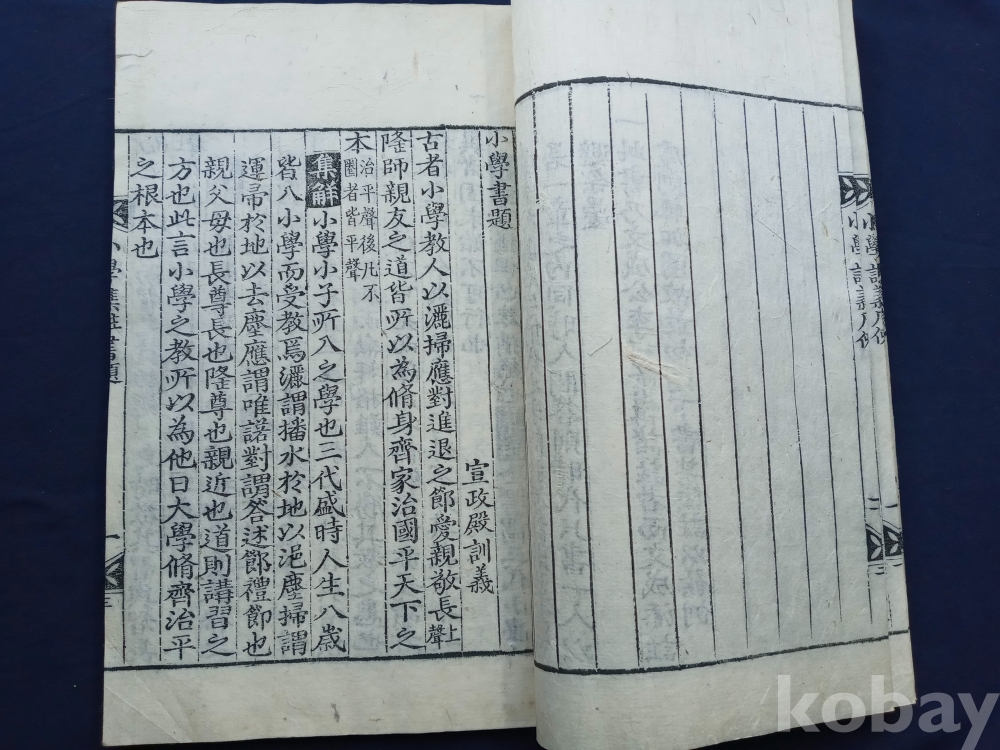 小學訓義凡例
小學書題
宣政殿訓義
古者小學教人以灑掃應對進退之節愛親敬長上聲
隆師親友之道皆所以為脩身齊家治國平天下之
本治平聲後凡不
圈者皆平聲
集解小學小子所入之學也三代盛時人生八歲
皆入小學而受教焉灑謂播水於地以浥塵掃謂
運帚於地以去塵應謂唯諾對謂答述節禮節也
親父母也長尊長也隆尊也親近也道則講習之
方也此言小學之教所以為他日大學脩齊治平
之根本也
小學集註書題
一
kobay